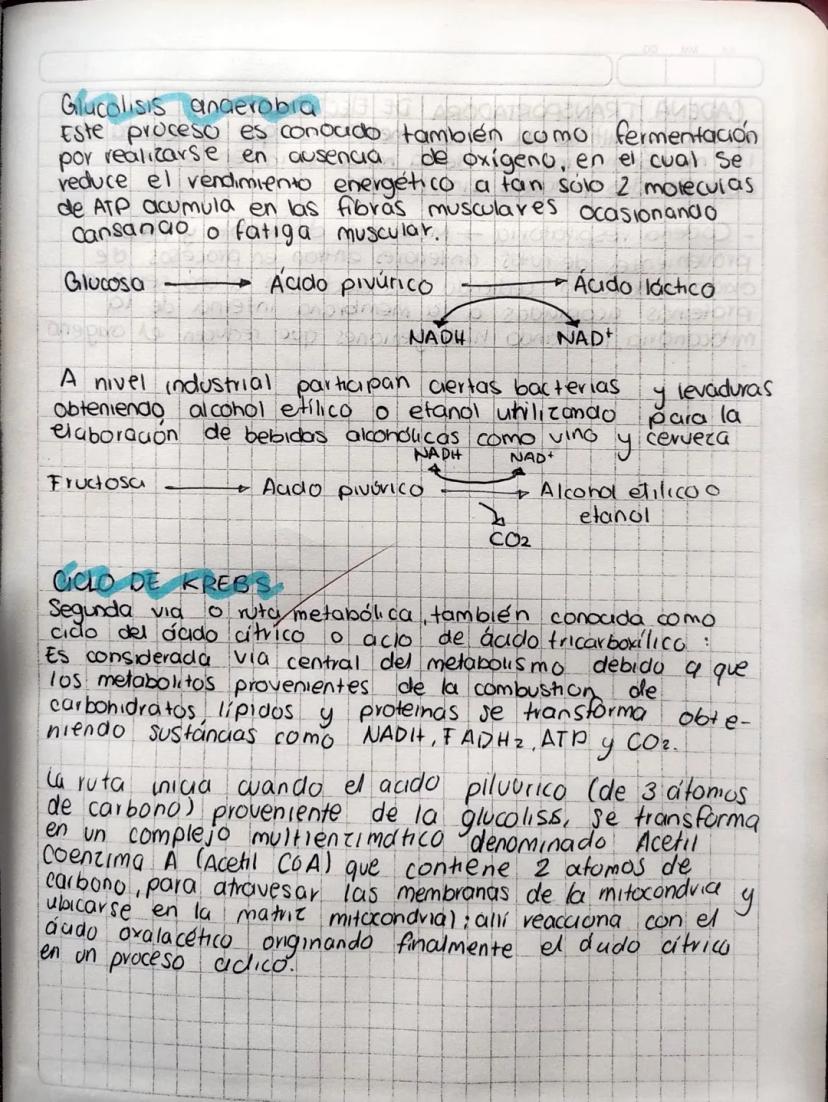 Glucolisis anaerobia
Este proceso es conocido también como fermentación
por realizarse en ausencia de oxígeno, en el cual se
reduce el rendimiento energético a tan sólo 2 moleculas
de ATP acumula en las fibras musculares ocasionando
cansancio o fatiga muscular.
Glucosa → Ácido pivúrico → Ácido láctico
NADH NAD+
A nivel industrial participan ciertas bacterias y levaduras
obteniendo alcohol etílico o etanol utilizando para la
elaboración de bebidas alcohólicas como vino y cerveza
NADH NAD+
Fructosa → Acido pivúrico → Alcohol etílico o
etanol
CO2
CICLO DE KREBS
Segunda via o ruta metabólica, también conocida como
ciclo del ácido cítrico o ciclo de ácido tricarboxílico:
Es considerada vía central del metabolismo debido a que
los metabolitos provenientes de la combustion de
carbohidratos, lípidos y proteinas se transforma obte-
niendo sustancias como NADH, FADH2, ATP y CO2.
La ruta inicia cuando el acido piluvúrico (de 3 átomos
de carbono) proveniente de la glucoliss, se transforma
en un complejo multienzimático denominado Acetil
Coenzima A (Acetil COA) que contiene 2 atomos de
carbono, para atravesar las membranas de la mitocondria y
ubicarse en la matriz mitocondrial; allí reacciona con el
ácido oxalacético originando finalmente el ácido cítrico
en un proceso ciclico.